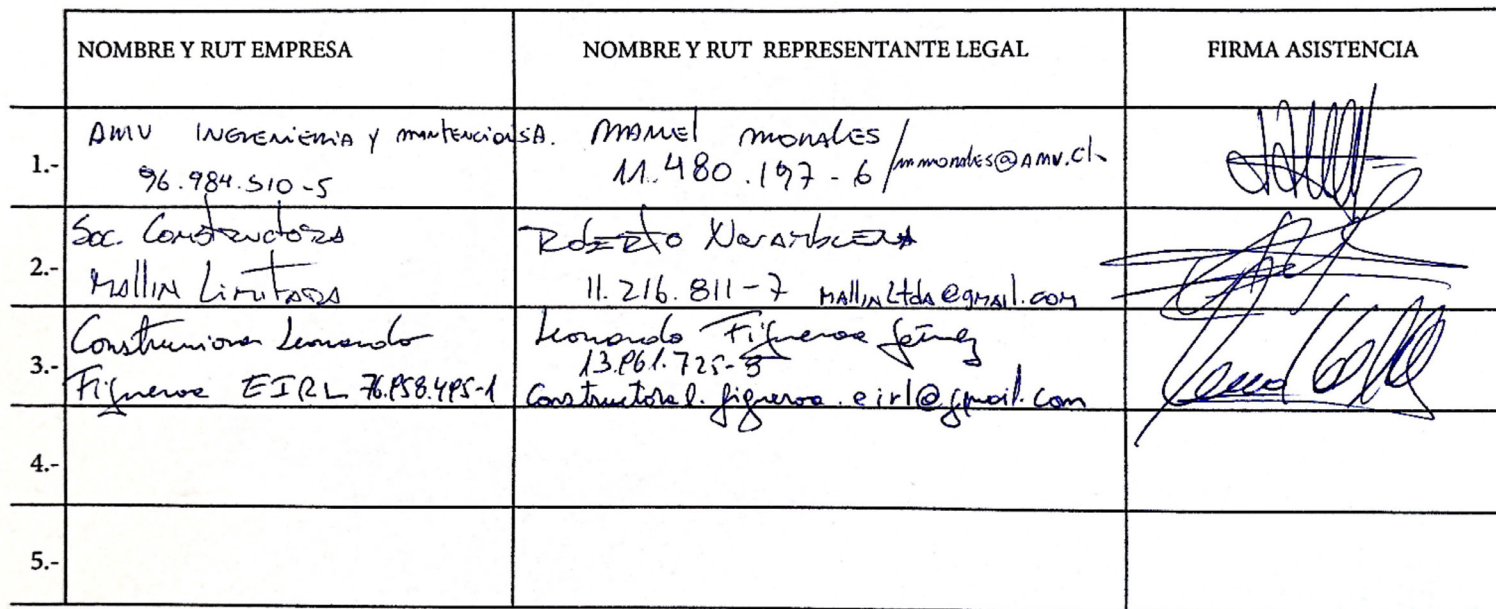 NOMBRE Y RUT EMPRESA
NOMBRE Y RUT REPRESENTANTE LEGAL
FIRMA ASISTENCIA
1.-
AMV INGENIERIA y mantencion SA.
96.984.510-5
Manuel morales
11.480.197-6 / mmorales@amv.cl
2.-
Soc. Constructora
Mallin Limitada
Roberto
11.216.811-7 MallinLtda@gmail.com
3.-
Leonardo
Figueroa EIRL
Leonardo Figueroa
constructora.l.figueroa.eirl@gmail.com
4.-
5.-